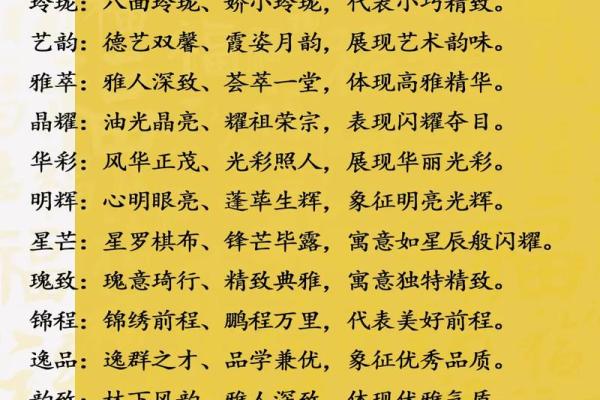 玲珑：八面玲珑、娇小玲珑，代表小巧精致。
艺韵：德艺双馨、霞姿月韵，展现艺术韵味。
雅萃：雅人深致、荟萃一堂，体现高雅精华。
晶耀：油光晶亮、耀祖荣宗，表现闪耀夺目。
华彩：风华正茂、光彩照人，展现华丽光彩。
明辉：心明眼亮、蓬荜生辉，象征明亮光辉。
星芒：星罗棋布、锋芒毕露，寓意如星辰般闪耀。
瑰致：瑰意琦行、精致典雅，寓意独特精致。
锦程：锦绣前程、鹏程万里，代表美好前程。
逸品：逸群之才、品学兼优，象征优秀品质。
韵致：林下风韵、雅人深致，体现优雅气质。